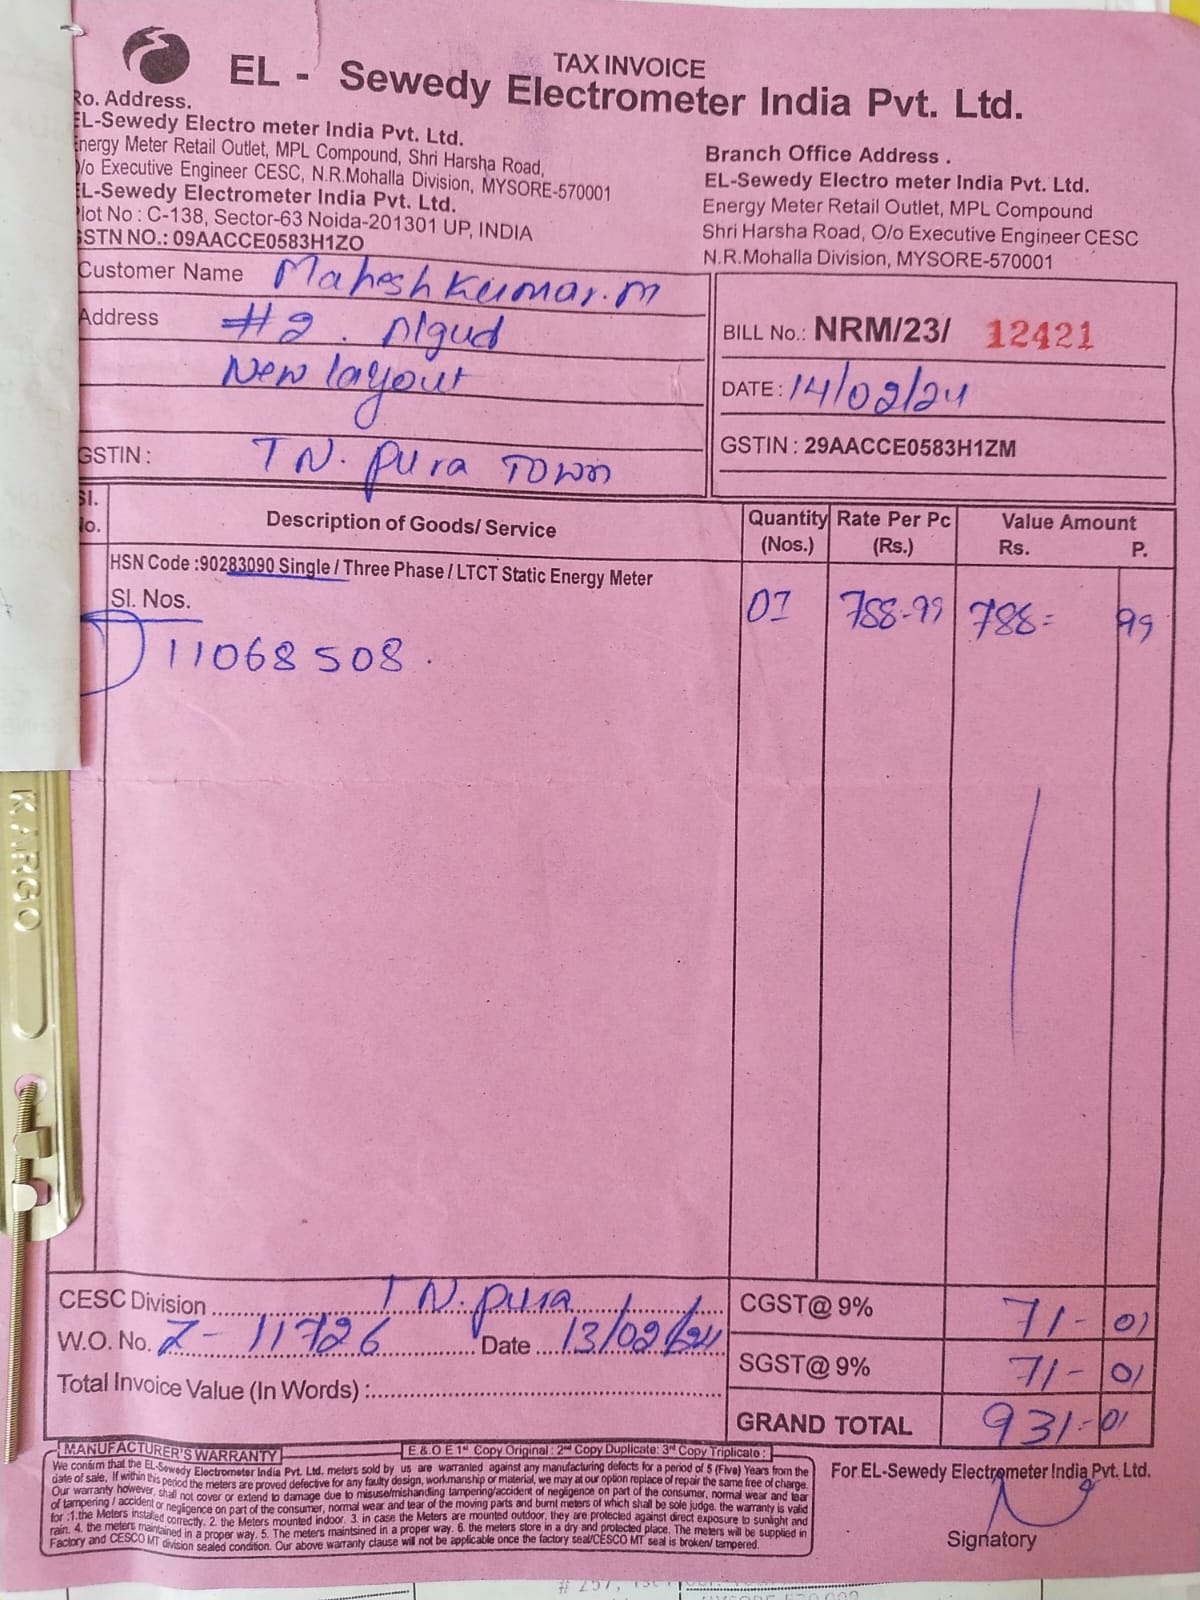 TAX INVOICE
EL - Sewedy Electrometer India Pvt. Ltd.
Ro. Address.
EL-Sewedy Electro meter India Pvt. Ltd.
Energy Meter Retail Outlet, MPL Compound, Shri Harsha Road,
O/o Executive Engineer CESC, N.R.Mohalla Division, MYSORE-570001
EL-Sewedy Electrometer India Pvt. Ltd.
Plot No : C-138, Sector-63 Noida-201301 UP, INDIA
GSTN NO.: 09AACCE0583H1ZO
Branch Office Address .
EL-Sewedy Electro meter India Pvt. Ltd.
Energy Meter Retail Outlet, MPL Compound
Shri Harsha Road, O/o Executive Engineer CESC
N.R.Mohalla Division, MYSORE-570001
Customer Name Mahesh Kumar. M
Address #2. Algud
New layout
GSTIN : T N. Pura Town
BILL No.: NRM/23/ 12421
DATE : 14/02/24
GSTIN : 29AACCE0583H1ZM
Sl. No. Description of Goods/ Service Quantity (Nos.) Rate Per Pc (Rs.) Value Amount Rs. P.
HSN Code :90283090 Single / Three Phase / LTCT Static Energy Meter
Sl. Nos. 01 788-99 788= 99
11068508.
CESC Division T N. pura
W.O. No. Z-11726 Date 13/02/24
Total Invoice Value (In Words) :
CGST@ 9% 71- 01
SGST@ 9% 71- 01
GRAND TOTAL 931- 01
MANUFACTURER'S WARRANTY
E & O E 1st Copy Original : 2nd Copy Duplicate: 3rd Copy Triplicate :
We confirm that the EL-Sewedy Electrometer India Pvt. Ltd. meters sold by us are warranted against any manufacturing defects for a period of 5 (Five) Years from the
date of sale, If within this period the meters are proved defective for any faulty design, workmanship or material, we may at our option replace of repair the same free of charge.
Our warranty however, shall not cover or extend to damage due to misuse/mishandling tampering/accident of negligence on part of the consumer, normal wear and tear
of tampering / accident or negligence on part of the consumer, normal wear and tear of the moving parts and burnt meters of which shall be sole judge. the warranty is valid
for :1.the Meters installed correctly. 2. the Meters mounted indoor. 3. in case the Meters are mounted outdoor, they are protected against direct exposure to sunlight and
rain. 4. the meters maintained in a proper way. 5. The meters maintsined in a proper way. 6. the meters store in a dry and protected place. The meters will be supplied in
Factory and CESCO MT division sealed condition. Our above warranty clause will not be applicable once the factory seal/CESCO MT seal is broken/ tampered.
For EL-Sewedy Electrometer India Pvt. Ltd.
Signatory
KARGO